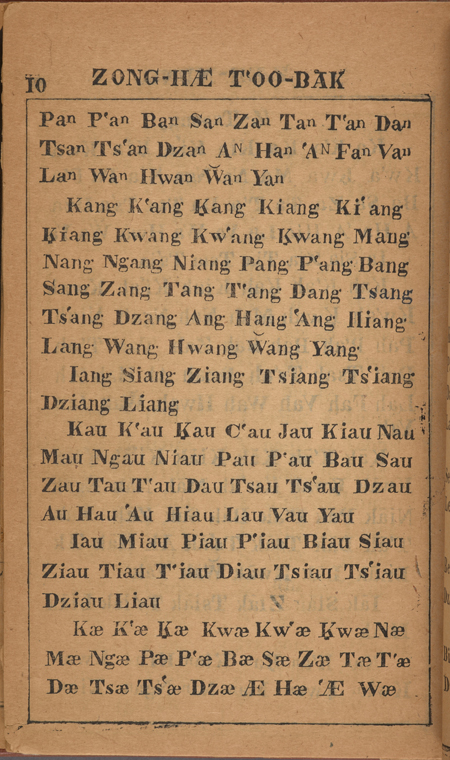 10 ZONG-HÆ T‘OO-BĂK
Paⁿ P‘aⁿ Baⁿ Saⁿ Zaⁿ Taⁿ T‘aⁿ Daⁿ
Tsaⁿ Ts‘aⁿ Dzaⁿ Aᴺ Haⁿ ‘Aᴺ Faⁿ Vaⁿ
Laⁿ Waⁿ Hwaⁿ W̆aⁿ Yaⁿ
Kang K‘ang K̦ang Kiang Ki‘ang
K̦iang Kwang Kw‘ang K̦wang Mang
Nang Ngang Niang Pang P‘ang Bang
Sang Zang Tang T‘ang Dang Tsang
Ts‘ang Dzang Ang Hang ‘Ang Hiang
Lang Wang Hwang W̆ang Yang
Iang Siang Ziang Tsiang Ts‘iang
Dziang Liang
Kau K‘au K̦au C‘au Jau Kiau Nau
Mau Ngau Niau Pau P‘au Bau Sau
Zau Tau T‘au Dau Tsau Ts‘au Dzau
Au Hau ‘Au Hiau Lau Vau Yau
Iau Miau Piau P‘iau Biau Siau
Ziau Tiau T‘iau Diau Tsiau Ts‘iau
Dziau Liau
Kæ K‘æ K̦æ Kwæ Kw‘æ K̦wæ Næ
Mæ Ngæ Pæ P‘æ Bæ Sæ Zæ Tæ T‘æ
Dæ Tsæ Ts‘æ Dzæ Æ Hæ ‘Æ Wæ